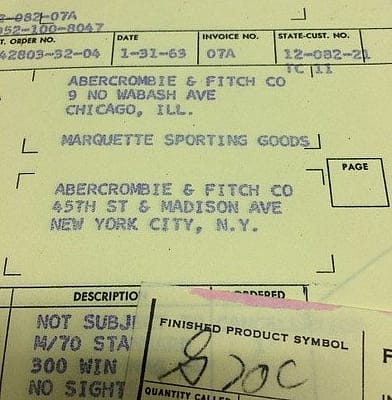 2-082-07A
952-100-8047
T. ORDER NO. DATE INVOICE NO. STATE-CUST. NO.
42803-32-04 1-31-63 07A 12-082-21
TC 11
ABERCROMBIE & FITCH CO
9 NO WABASH AVE
CHICAGO, ILL.
MARQUETTE SPORTING GOODS
PAGE
ABERCROMBIE & FITCH CO
45TH ST & MADISON AVE
NEW YORK CITY, N.Y.
DESCRIPTIO ORDERED
NOT SUBJ
M/70 STA
300 WIN
NO SIGHT
FINISHED PRODUCT SYMBOL
G70C
QUANTITY CALLE